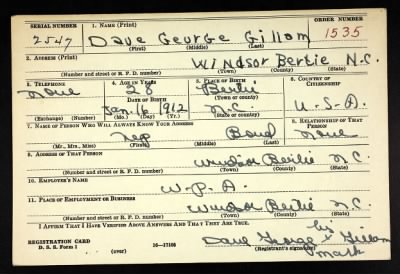 SERIAL NUMBER 1. NAME (Print) ORDER NUMBER
2547 Dave George Gillam 1535
(First) (Middle) (Last)
2. ADDRESS (Print)
Windsor Bertie N.C.
(Number and street or R. F. D. number) (Town) (County) (State)
3. TELEPHONE 4. AGE IN YEARS 5. PLACE OF BIRTH 6. COUNTRY OF CITIZENSHIP
None 28 Bertie
DATE OF BIRTH (Town or county)
Jan. 16 1912 N.C. U.S.A.
(Exchange) (Number) (Mo.) (Day) (Yr.) (State or country)
7. NAME OF PERSON WHO WILL ALWAYS KNOW YOUR ADDRESS 8. RELATIONSHIP OF THAT PERSON
Bond None
(Mr., Mrs., Miss) (First) (Middle) (Last)
9. ADDRESS OF THAT PERSON
Windsor Bertie N.C.
(Number and street or R. F. D. number) (Town) (County) (State)
10. EMPLOYER'S NAME
W.P.A.
11. PLACE OF EMPLOYMENT OR BUSINESS
Windsor Bertie N.C.
(Number and street or R. F. D. number) (Town) (County) (State)
I AFFIRM THAT I HAVE VERIFIED ABOVE ANSWERS AND THAT THEY ARE TRUE.
his
Dave George x Gillam
mark
REGISTRATION CARD
D. S. S. Form 1 (over) 16-17105 (Registrant's signature)